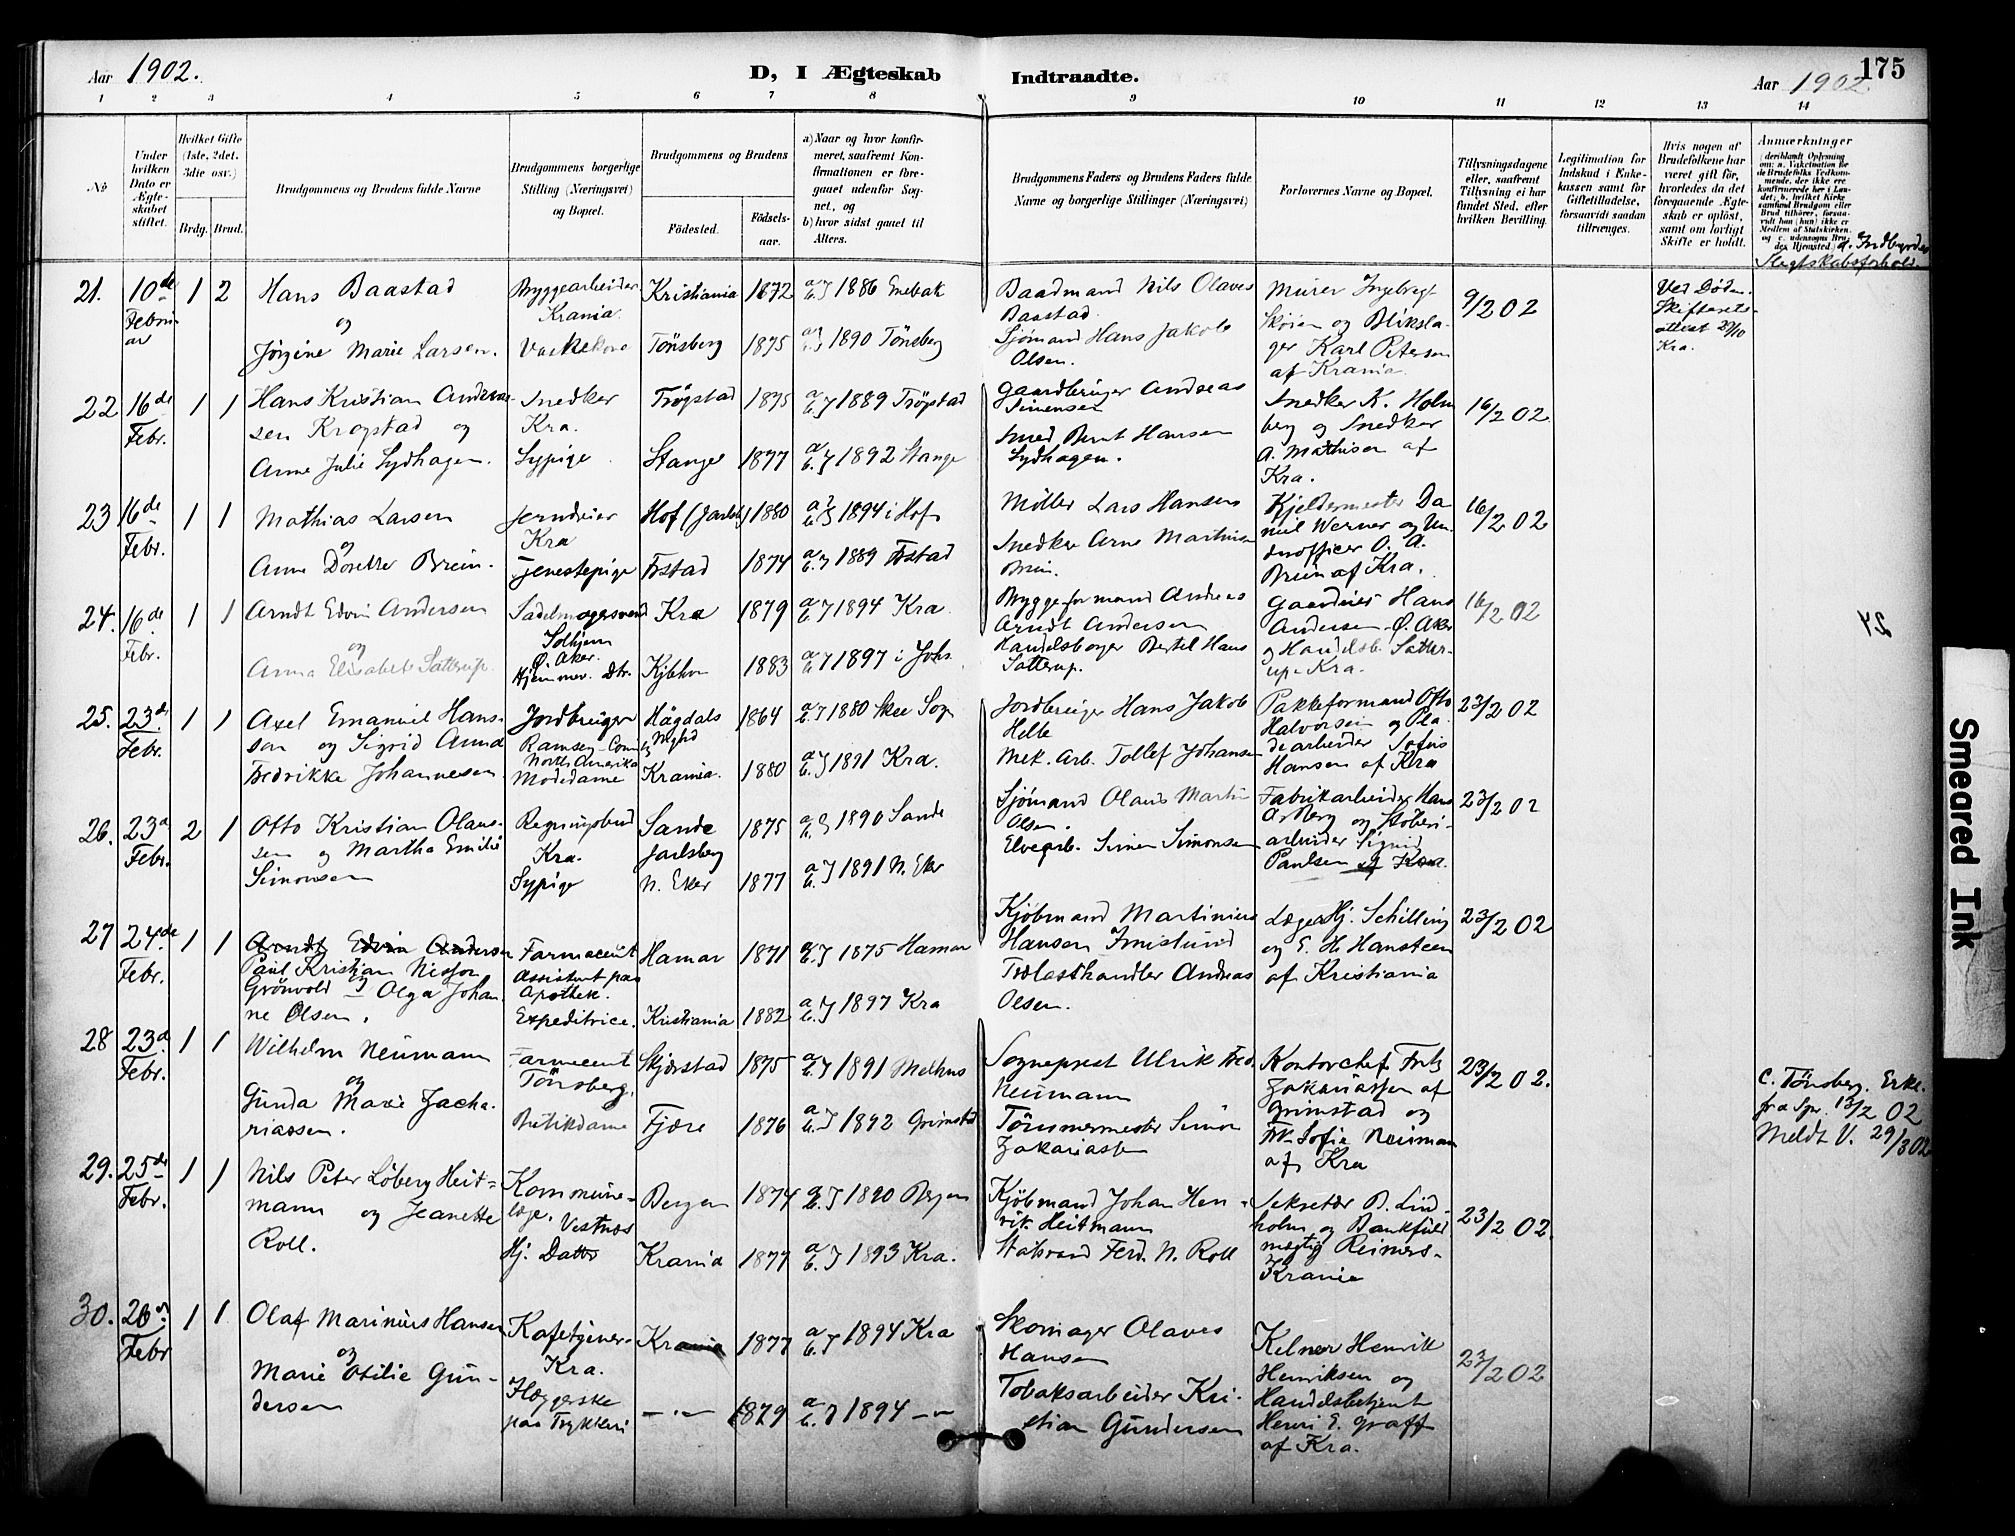 Aar 1902.
D, I Ægteskab Indtraadte.
Aar 1902.
175
1 2 3 4 5 6 7 8 9 10 11 12 13 14
No
Under hvilken Dato er Ægteskabet stiftet.
Hvilket Gifte (1ste, 2det, 3die osv.)
Brdg. Brud.
Brudgommens og Brudens fulde Navne
Brudgommens borgerlige Stilling (Næringsvei) og Bopæl.
Brudgommens og Brudens
Fødested.
Fødselsaar.
a) Naar og hvor konfirmeret, saafremt Konfirmationen er foregaaet udenfor Sognet, og
b) hvor sidst gaaet til Alters.
Brudgommens Faders og Brudens Faders fulde Navne og borgerlige Stillinger (Næringsvei)
Forlovernes Navne og Bopæl.
Tillysningsdagene eller, saafremt Tillysning ei har fundet Sted, efter hvilken Bevilling.
Legitimation for Indskud i Enkekassen samt for Giftetilladelse, forsaavidt saadan tiltrænges.
Hvis nogen af Brudefolkene har været gift før, hvorledes da det foregaaende Ægteskab er opløst, samt om lovligt Skifte er holdt.
Anmærkninger
(deriblandt Oplysning om: a. Vakcination for de Brudefolks Vedkommende, der ikke ere konfirmerede her i Landet; b. hvilket Kirkesamfund Brudgom eller Brud tilhører, forsaavidt han (hun) ikke er Medlem af Statskirken, og c. udensogns Brudes Hjemsted.)
d. Indbyrdes Slegtskabsforhold
21. 10de Februar 1 2
Hans Baastad
og
Jørgine Marie Larsen.
Byggearbeider
Krania.
Kristiania 1872
1886 Enebak
Tønsberg 1875
1890 Tønsberg
Baadmand Nils Olaves
Baastad.
Sjømand Hans Jakob
Olsen.
Murer Ingebregt
Skøien og Bliksla-
ger Karl Petersen
af Krania.
9/2 02
Ved Døden.
Skifterets-
attest 29/10
Kra.
22 16de Febr. 1 1
Hans Kristian Andrea-
sen Krogstad og
Anne Julie Sydhagen.
Snedker
Kra.
Sypige
Trøgstad 1875
1889 Trøgstad
Stange 1877
1892 Stange
Gaardbruger Andreas
Simensen
Smed Bernt Hansen
Sydhagen.
Snedker K. Holm
berg og Snedker
A. Mathisen af
Kra.
16/2 02
23 16de Febr. 1 1
Mathias Larsen
og
Anne Dorethe Brein.
Jerndreier
Kra
Tjenestepige
Hof (Jarlsb) 1880
1894 i Hof
Frstad 1874
1889 Frstad
Møller Lars Hansen
Snedker Arne Martinsen
Brein.
Kjeldermester Da
niel Werner og Un-
derofficer O. A.
Brein af Kra.
16/2 02
24. 16de Febr. 1 1
Arndt Edvin Andersen
og
Anna Elisabeth Satterup.
Sadelmagersvend
Solhjem
Ø. Aker.
Hjemmev. Dtr.
Kra 1879
1894 Kra
Kjbhvn 1883
1897 i Johs.
Byggeformand Andreas
Arndt Andersen
Handelsborger Bertel Hans
Satterup.
Gaardeier Hans
Andersen Ø. Aker
og Handelsb. Satter-
up Kra.
16/2 02
24
25. 23de Febr. 1 1
Axel Emanuel Hans-
sen og Sigrid Anna
Fredrikke Johannesen
Jordbruger
Ramsey-County
North Amerika
Modedame
Hägdals
1864
1880 Skee Sogn
Krania. 1880
1891 Kra.
Jordbruger Hans Jakob
Helte
Mek. Arb. Tollef Johansen
Pakkeformand Otto
Halvorsen og Pla-
dearbeider Sofus
Hansen af Kra
23/2 02
26. 23de Febr. 2 1
Otto Kristian Olaus-
sen og Martha Emilie
Simonsen
Regningsbud
Kra.
Sypige
Sande
Jarlsberg
1875
1890 Sande
N. Eker 1877
1891 N. Eker
Sjømand Olaus Martin
Olsen.
Elvearb. Simen Simonsen
Fabrikarbeider Hans
A. Berg og Støberi-
arbeider Sigurd
Paulsen af Kra.
23/2 02
27 24de Febr. 1 1
Arndt Edvin Andersen
Paul Kristian Nestor
Grønvold og Olga Johan
ne Olsen.
Farmaceut
Assistent paa
Apothek.
Expeditrice.
Hamar 1871
1875 Hamar
Kristiania 1882
1897 Kra
Kjøbmand Martinius
Hansen Imislund
Trælasthandler Andreas
Olsen.
Læge Hj. Schilling
og E. H. Hansteen
af Kristiania
23/2 02
28 23de Febr. 1 1
Wilhelm Neumann
og
Gunda Marie Zacha-
riassen.
Farmeceut
Tønsberg.
Butikdame
Skjerstad 1875
1891 Melhus
Fjære 1876
1892 Grimstad
Sogneprest Ulrik Fred.
Neumann
Tømmermester Simon
Zakariassen
Kontorchef Frits
Zakariassen af
Grimstad og
Frk. Sofie Neuman
af Kra
23/2 02.
C. Tønsberg. Erkl.
fra Spr. 13/2 02
Meldt V. 29/3 02
29. 25de Febr. 1 1
Nils Peter Løberg Heit-
mann og Jeanette
Roll.
Kommune-
læge. Vestnes
Hj. Datter
Bergen 1874
1890 Bergen
Krania 1877
1893 Kra.
Kjøbmand Johan Hen-
rik Heitmann
Statsraad Ferd. N. Roll
Sekretær B. Lind-
holm og Bankfuld
mægtig Reimers-
Krania
23/2 02.
30. 26de Febr 1 1
Olaf Marinius Hansen
og
Marie Otilie Gun-
dersen
Kafetjener-
Kra.
Ilæggerske
paa Trykkeri
Krania 1877
1894 Kra
— „ — 1879
1894 — „ —
Skomager Olaves
Hansen
Tobaksarbeider Kri-
stian Gundersen
Kelner Henrik
Henriksen og
Handelsbetjent
Henri E. Graff
af Kra.
23/2 02
Smeared Ink